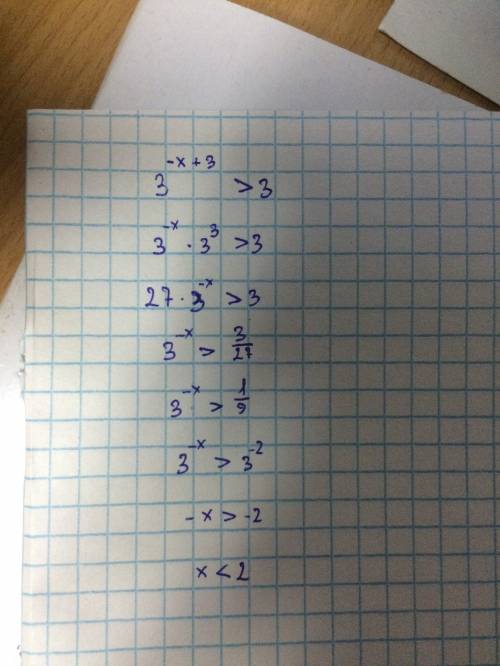 3^{-x+3} > 3
3^{-x} · 3^3 > 3
27 · 3^{-x} > 3
3^{-x} > 3/27
3^{-x} > 1/9
3^{-x} > 3^{-2}
-x > -2
x < 2